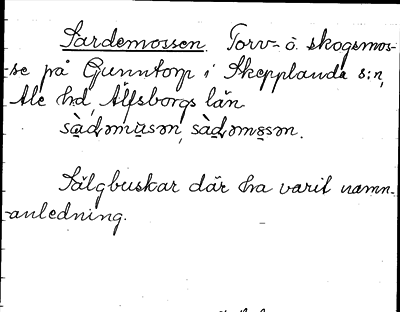 Sardemossen. Torv- o. skogsmos-
se på Gunntorp i Skepplanda s:n,
Ale hd, Älfsborgs län
Sälgbuskar där ha varit namn-
anledning.